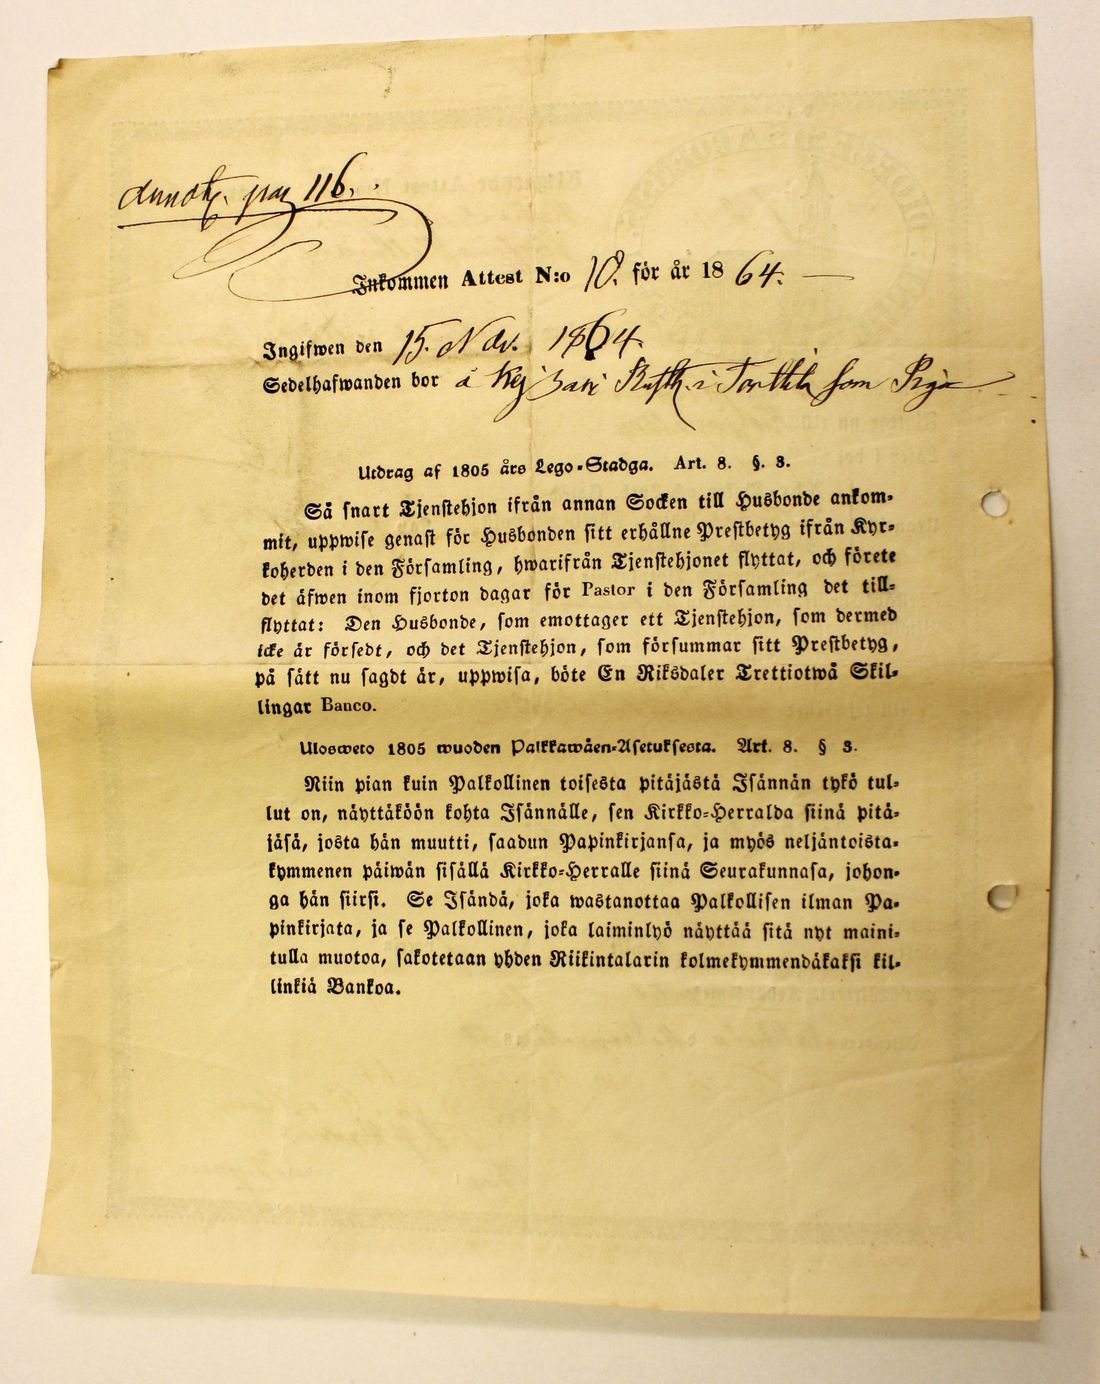 annot. pag 116.
Inkommen Attest N:o 10. för år 1864.
Ingifwen den 15. Nov. 1864.
Sedelhafwanden bor å i som Piga
Utdrag af 1805 års Lego-Stadga. Art. 8. §. 3.
Så snart Tjenstehjon ifrån annan Socken till Husbonde ankom-
mit, uppwise genast för Husbonden sitt erhållne Prestbetyg ifrån Kyr-
koherden i den Församling, hwarifrån Tjenstehjonet flyttat, och förete
det äfwen inom fjorton dagar för Pastor i den Församling det till-
flyttat: Den Husbonde, som emottager ett Tjenstehjon, som dermed
icke är försedt, och det Tjenstehjon, som försummar sitt Prestbetyg,
på sätt nu sagdt är, uppwisa, böte En Riksdaler Trettiotwå Skil-
lingar Banco.
Ulosweto 1805 wuoden Palkkawäen-Asetuksesta. Art. 8. § 3.
Niin pian kuin Palkollinen toisesta pitäjästä Isännän tykö tul-
lut on, näyttäköön kohta Isännälle, sen Kirkko-Herralda siinä pitä-
jäsä, josta hän muutti, saadun Papinkirjansa, ja myös neljäntoista-
kymmenen päiwän sisällä Kirkko-Herralle siinä Seurakunnasa, johon-
ga hän siirsi. Se Isändä, joka wastanottaa Palkollisen ilman Pa-
pinkirjata, ja se Palkollinen, joka laiminlyö näyttää sitä nyt maini-
tulla muotoa, sakotetaan yhden Riikintalarin kolmekymmendäkaksi kil-
linkiä Bankoa.